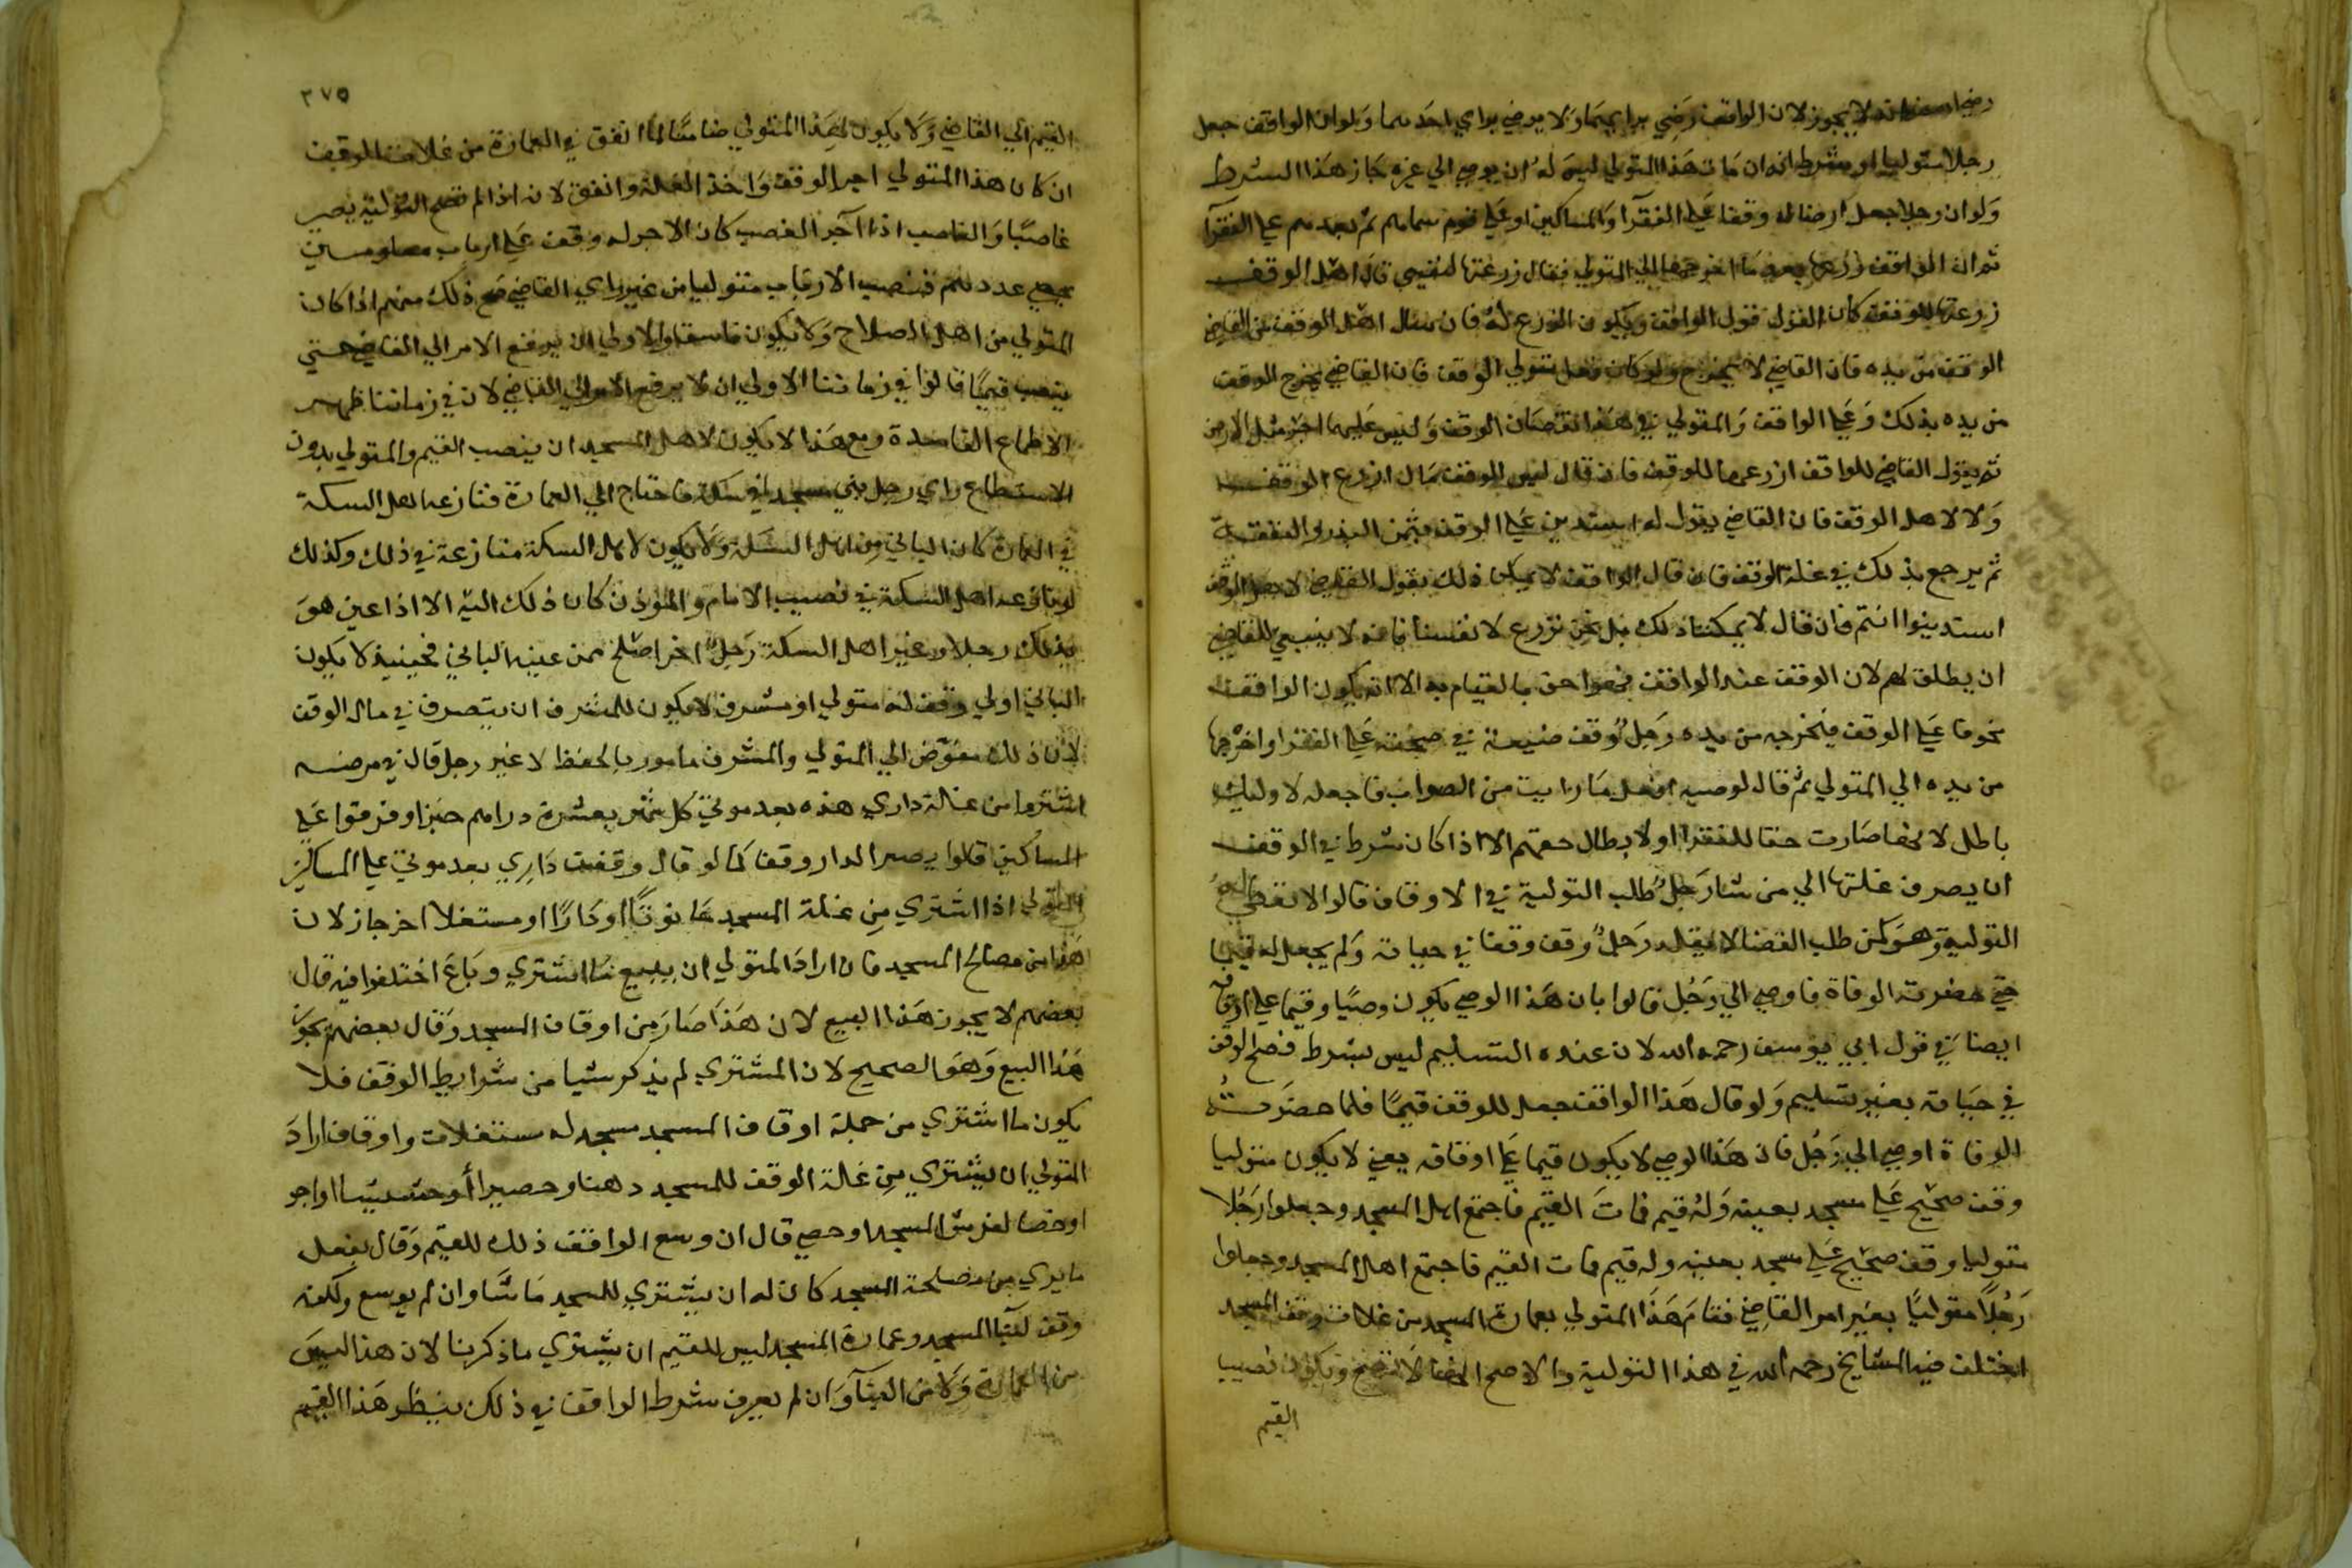 لا يجوز لان الواقف رضي برايهما ولا يرضي براي احدهما ولو ان الواقف جعل
رجلا متوليا وشرط انه ان مات هذا المتولي ليس له ان يوصي الي غيره جاز هذا الشرط
ولو ان رجلا جعل ارضا له وقفا علي الفقرآ والمساكين او علي قوم سماهم ثم بعدهم علي الفقرآ
ثم ان الواقف زرعها بعد ما اخرجها الي المتولي فقال زرعتها لنفسي قال اهل الوقف
زرعتها للوقف كان القول قول الواقف ويكون الزرع له فان سال اهل الوقف من القاضي
الوقف من يده فان القاضي لا يخرج ولو كان فعل متولي الوقف فان القاضي يخرج الوقف
من يده بذلك وعلي الواقف والمتولي في هذا نقصان الوقف وليس عليهما اجر مثل الارض
ثم يقول القاضي للواقف ازرعها للوقف فان قال ليس للوقف مال ازرع الوقف
ولا لاهل الوقف فان القاضي يقول له استدين علي الوقف بثمن البذر والنفقة
ثم يرجع بذلك في غلة الوقف فان قال الواقف لا يمكن ذلك يقول القاضي لاهل الوقف
استدينوا انتم فان قال لا يمكننا ذلك بل نحن نزرع لانفسنا فانه لا ينبغي للقاضي
ان يطلق لهم لان الوقف عند الواقف فهو احق بالقيام به الا ان يكون الواقف
مخوفا علي الوقف فيخرجه من يده رجل وقف ضيعة في صحته علي الفقرا واخرجها
من يده الي المتولي ثم قال لوصيه افعل ما رايت من الصواب فاجعله لاوليك
باطل لانها صارت حقا للفقرا او لا بطال حقهم الا اذا كان شرط في الوقف
ان يصرف غلتها الي من شا رجل طلب التولية في الاوقاف قالوا لا تعطي له
التولية وهو كمن طلب القضا لا يقلد رجل وقف وقفا في حياته ولم يجعل له قيما
حتي حضرته الوفاة فاوصي الي رجل قالوا بان هذا الوصي يكون وصيا وقيما علي اوقافه
ايضا في قول ابي يوسف رحمه الله لان عنده التسليم ليس بشرط فصح الوقف
في حياته بغير تسليم ولو قال هذا الواقف جعل للوقف قيما فلما حضرته
الوفاة اوصي الي رجل فان هذا الوصي لا يكون قيما علي اوقافه يعني لا يكون متوليا
وقف صحيح علي مسجد بعينه وله قيم فمات القيم فاجتمع اهل المسجد وجعلوا رجلا
متوليا وقف صحيح علي مسجد بعينه وله قيم فمات القيم فاجتمع اهل المسجد وجعلوا
رجلا متوليا بغير امر القاضي فقام هذا المتولي بعمارة المسجد من غلات وقف المسجد
اختلف فيه المشايخ رحمه الله في هذا التولية والاصح انها لا تصح ويكون نصيب
القيم
٣٧٥
القيم الي القاضي ولا يكون لهذا المتولي ضامنا لما انفق في العمارة من غلات الوقف
ان كان هذا المتولي اجر الوقف واخذ الغلة وانفق لان اذا لم تصح التولية يصير
غاصبا والغاصب اذا آجر الغصب كان الاجر له وقف علي ارباب معلومين
يحصي عددهم فنصب الارباب متوليا من غير راي القاضي صح ذلك منهم اذا كان
المتولي من اهل الصلاح ولا يكون فاسقا والاولي ان يرفع الامر الي القاضي حتي
ينصب قيما قالوا في زماننا الاولي ان لا يرفع الامر الي القاضي لان في زماننا ظهر
الاطماع الفاسدة ومع هذا لا يكون لاهل المسجد ان ينصب القيم والمتولي بدون
الاستطلاع راي رجل بني مسجدا في سكة فاحتاج الي العمارة فنازعه اهل السكة
في العمارة كان الباني من اهل السكة ولا يكون لاهل السكة منازعة في ذلك وكذلك
لو نازعه اهل السكة في نصيب الامام والمؤذن كان ذلك اليه الا اذا عين هو
بذلك رجلا وعير اهل السكة رجل اخر اصلح ممن عينه الباني فحينيذ لا يكون
الباني اولي وقف له متولي او مشرف لا يكون للمشرف ان يتصرف في مال الوقف
لان ذلك مفوض الي المتولي والمشرف مامور بالحفظ لا غير رجل قال في مرضه
اشتروا من غلة داري هذه بعد موتي كل شهر بعشرة دراهم خبزا وفرقوا علي
المساكين قالوا يصير الدار وقفا كما لو قال وقفت داري بعد موتي علي المساكين
المتولي اذا اشتري من غلة المسجد حانوتا او دارا او مستغلا اخر جاز لان
هذا من مصالح المسجد فان اراد المتولي ان يبيع ما اشتري وباع اختلفوا فيه قال
بعضهم لا يجوز هذا البيع لان هذا صار من اوقاف المسجد وقال بعضهم يجوز
هذا البيع وهو الصحيح لان المشتري لم يذكر شيا من شرايط الوقف فلا
يكون ما اشتري من جملة اوقاف المسجد مسجد له مستغلات واوقاف اراد
المتولي ان يشتري من غلة الوقف للمسجد دهنا وحصيرا أو حشيشا او اجر
او خصا لفرش المسجد او حصي قال ان وسع الواقف ذلك للقيم وقال بفعل
ما يري من مصلحة المسجد كان له ان يشتري للمسجد ما شا وان لم يوسع ولكنه
وقف لبنا المسجد وعمارة المسجد ليس للقيم ان يشتري ما ذكرنا لان هذا ليس
من العمارة ولا من البنآ وان لم يعرف شرط الواقف في ذلك ينظر هذا القيم